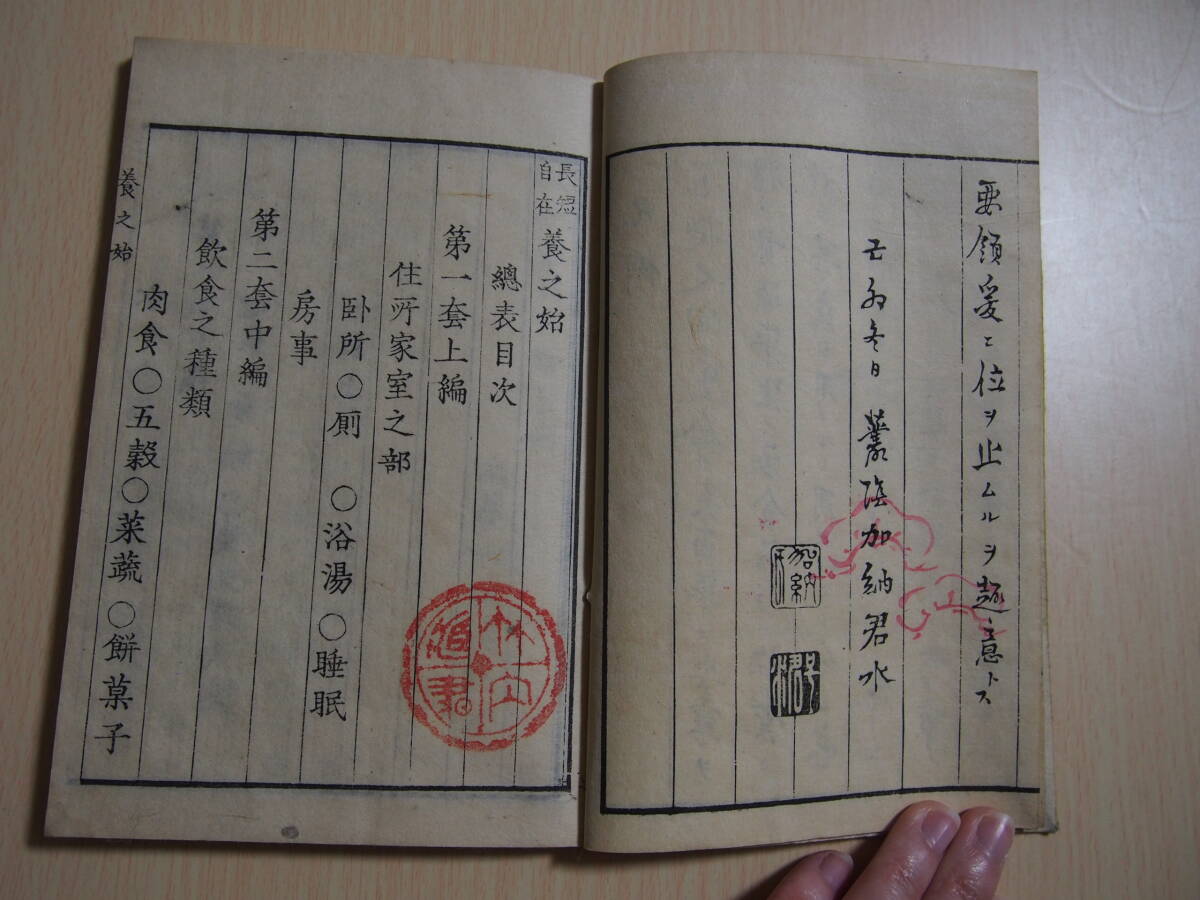 要領爰ニ位ヲ止ムルヲ趣意トス
冬日 叢陰加納君水
加納
長短
自在
養之始
總表目次
第一套上編
住所家室之部
卧所〇厠 〇浴湯 〇睡眠
房事
第二套中編
飲食之種類
肉食〇五穀〇菜蔬〇餅菓子
養之始
竹内